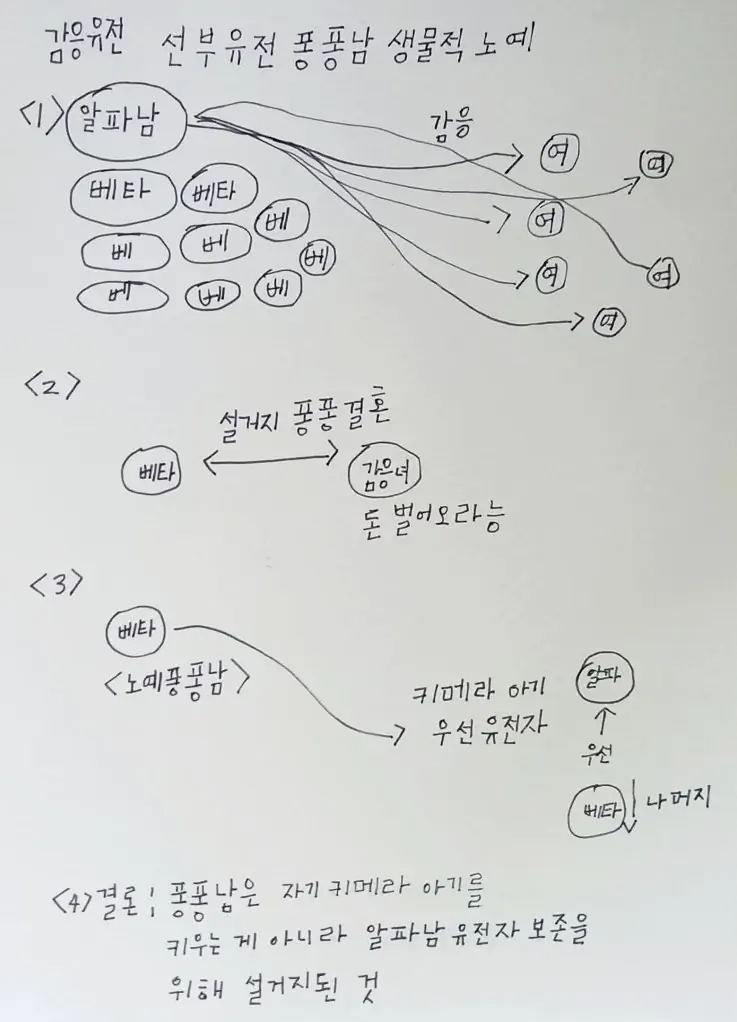 감응유전 선부유전 퐁퐁남 생물적 노예
<1> 알파남
감응
여
여
베타 베타
여
베 베 베
베
여
여
베 베 베
여
<2>
설거지 퐁퐁결혼
베타
감응녀
돈 벌어오라능
<3>
베타
<노예퐁퐁남>
키메라 아기
우선유전자
알파
↑
우선
베타 ↓ 나머지
<4> 결론; 퐁퐁남은 자기 키메라 아기를
키우는 게 아니라 알파남 유전자 보존을
위해 설거지된 것